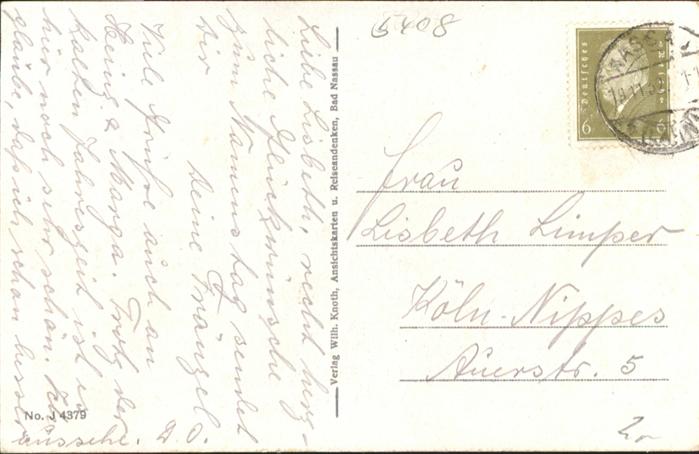 Liebe Lisbeth, recht herz-
liche Glückwünsche
zum Namenstag sendet
dir
Deine Fränzel.
Viele Grüße auch an
Heinz & Marga. Trotz der
kalten Jahreszeit ist es
hier noch sehr schön. Ich
glaube, daß ich schon besser
aussehe. D. O.
No. J 4379
Verlag Wilh. Knoth, Ansichtskarten u. Reiseandenken, Bad Nassau
5408
Deutsches Reich
6 6
NASSAU
Frau
Lisbeth Limper
Köln-Nippes
Auerstr. 5